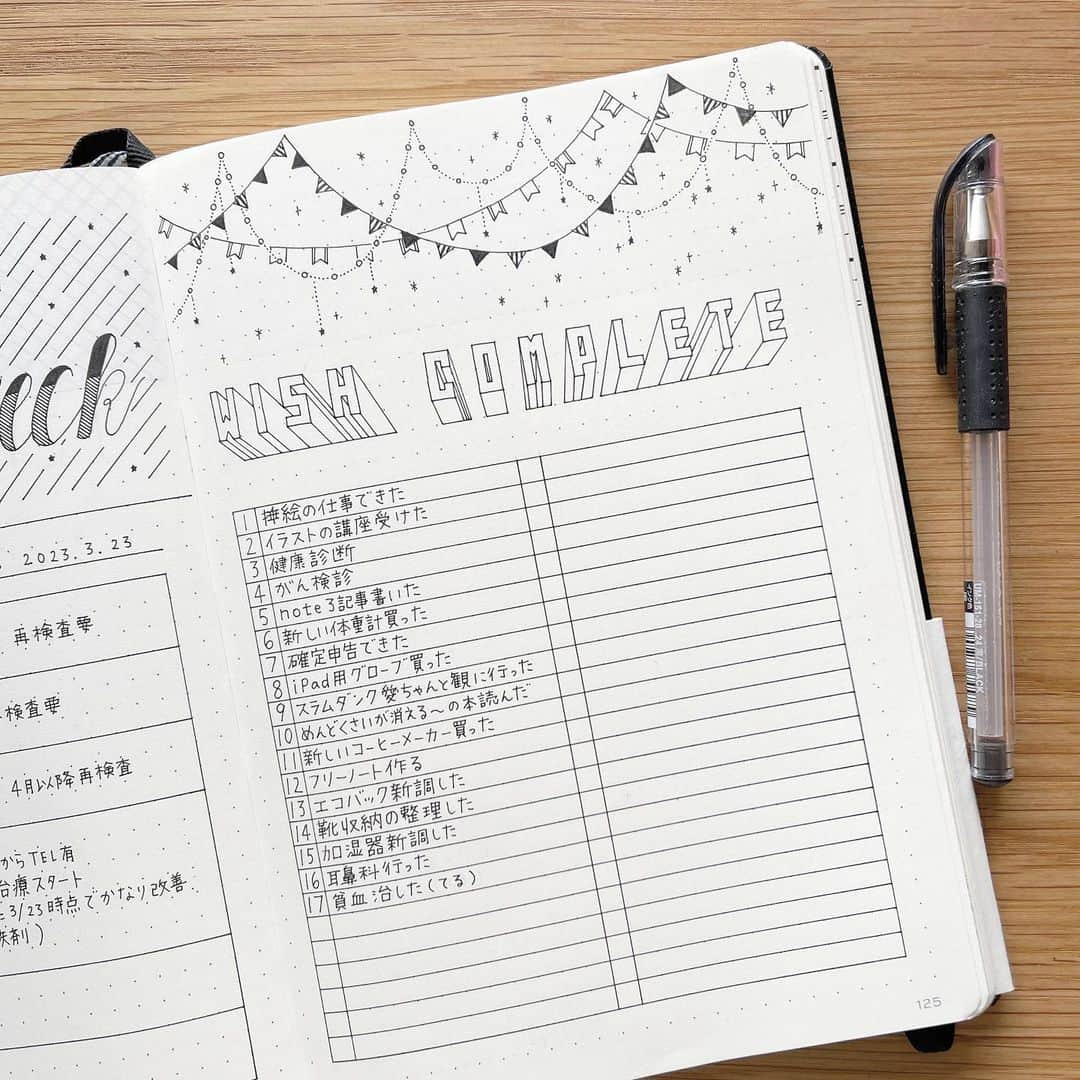 eck
2023.3.23
再検査要
検査要
4月以降再検査
からTEL有
治療スタート
3/23時点でかなり改善
剤)
WISH COMPLETE
1 挿絵の仕事できた
2 イラストの講座受けた
3 健康診断
4 がん検診
5 note3記事書いた
6 新しい体重計買った
7 確定申告できた
8 iPad用グローブ買った
9 スラムダンク愛ちゃんと観に行った
10 めんどくさいが消える〜の本読んだ
11 新しいコーヒーメーカー買った
12 フリーノート作る
13 エコバック新調した
14 靴収納の整理した
15 加湿器新調した
16 耳鼻科行った
17 貧血治した(てる)
125
UM-151-28
BLACK